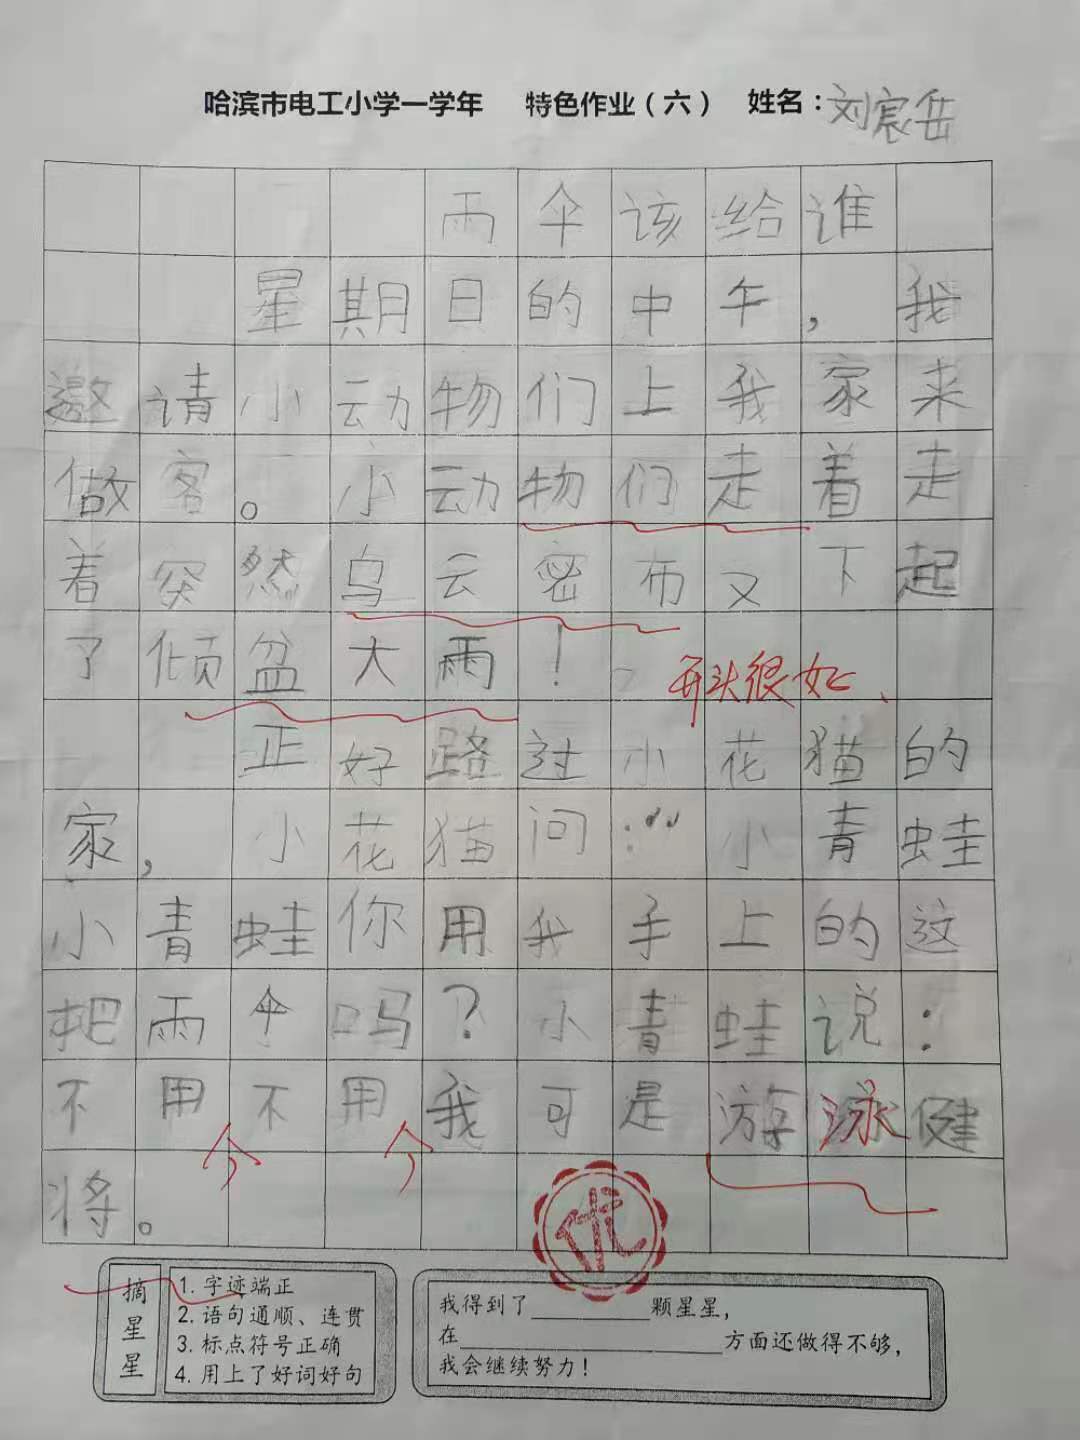 哈滨市电工小学一学年 特色作业（六） 姓名：刘宸岳
雨伞该给谁
星期日的中午，我
邀请小动物们上我家来
做客。小动物们走着走
着突然乌云密布又下起
了倾盆大雨！
开头很好、
正好路过小花猫的
家，小花猫问：“小青蛙
小青蛙你用我手上的这
把雨伞吗？小青蛙说：
不用不用我可是游泳健
将。
优
摘星星
1. 字迹端正
2. 语句通顺、连贯
3. 标点符号正确
4. 用上了好词好句
我得到了________颗星星，
在__________________方面还做得不够，
我会继续努力！